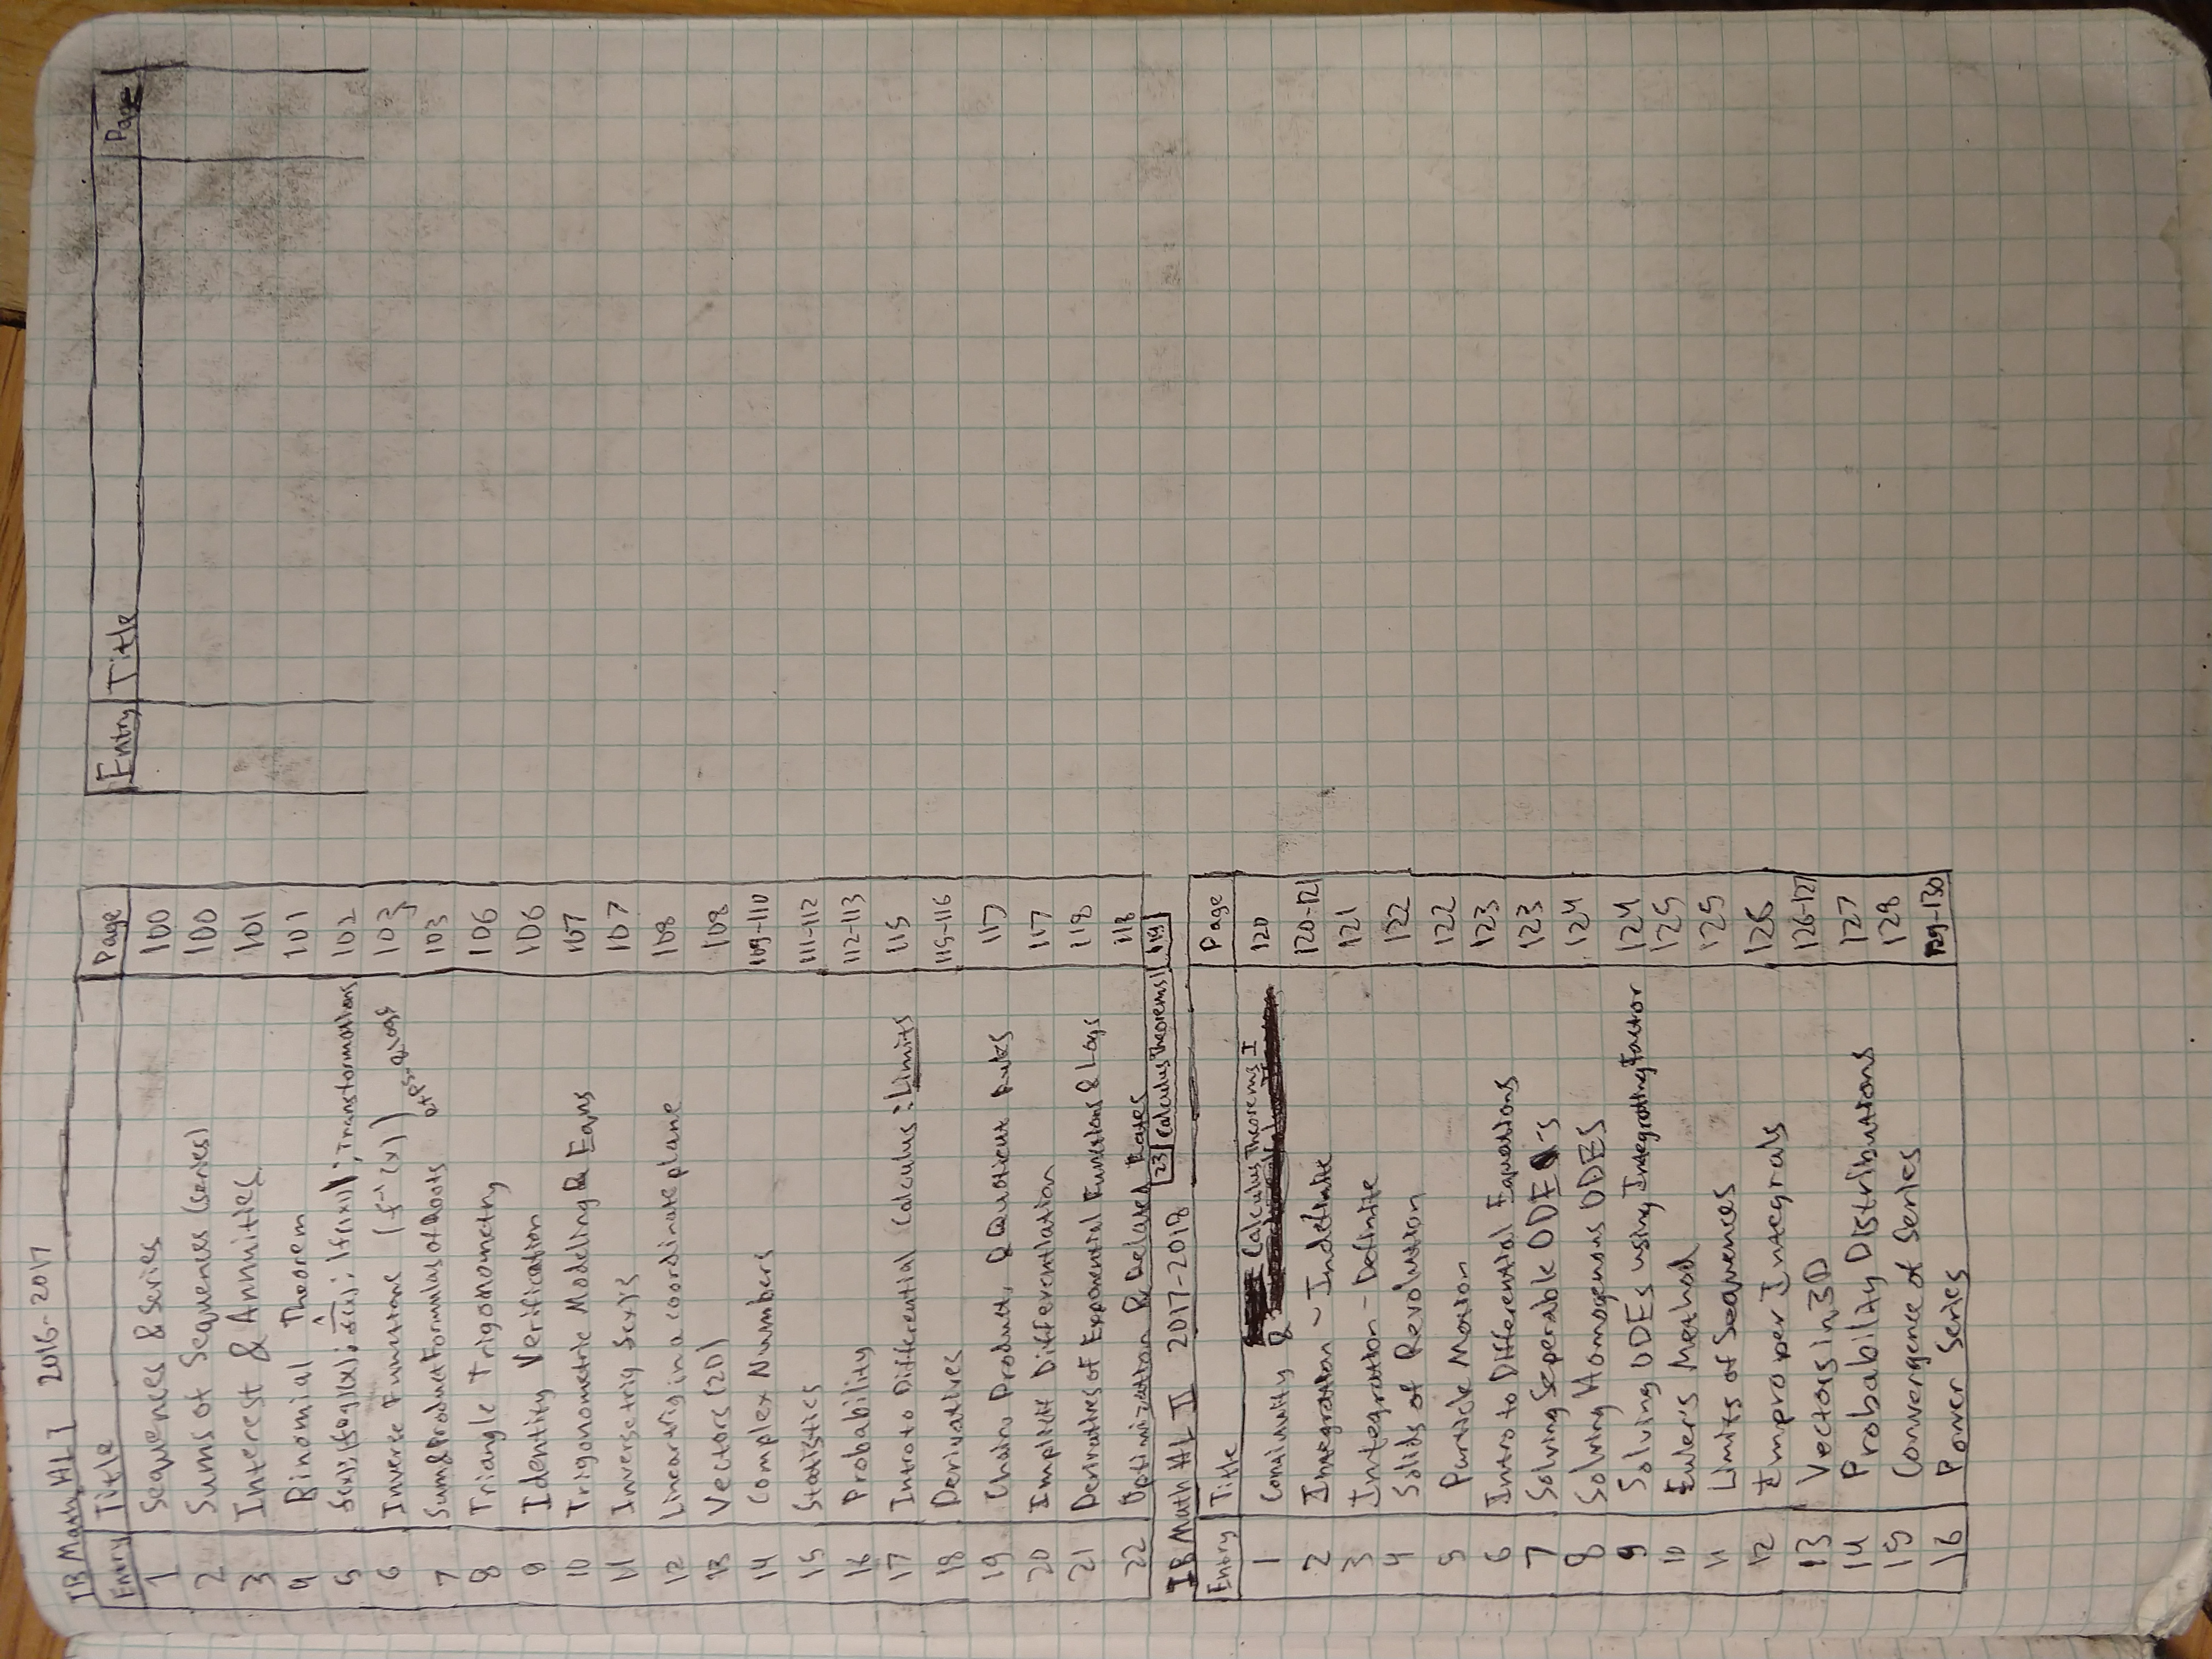 IB Math HL I 2016-2017
Entry Title Page
1 Sequences & Series 100
2 Sums of Sequences (series) 100
3 Interest & Annuities 101
4 Binomial Theorem 101
5 f(x); (fog)(x); 1/f(x); |f(x)|; Transformations 102
6 Inverse Functions (f⁻¹(x)) 103
exps. & logs
7 Sum&Product Formulas of Roots 103
8 Triangle Trigonometry 106
9 Identity Verification 106
10 Trigonometric Modeling & Eqns 107
11 Inverse trig f(x)'s 107
12 Linear trig in a coordinate plane 108
13 Vectors (2D) 108
14 Complex Numbers 109-110
15 Statistics 111-112
16 Probability 112-113
17 Intro to Differential Calculus: Limits 115
18 Derivatives 115-116
19 Chain, Product, & Quotient Rules 117
20 Implicit Differentiation 117
21 Derivatives of Exponential Functions & Logs 118
22 Optimization & Related Rates 118
23 Calculus Theorems I 119
IB Math HL II 2017-2018
Entry Title Page
1 Coninuity & Calculus Theorems I 120
2 Integration - Indefinite 120-121
3 Integration - Definite 121
4 Solids of Revolution 122
5 Particle Motion 122
6 Intro to Differential Equations 123
7 Solving Seperable ODE-s 123
8 Solving Homogenous ODES 124
9 Solving ODEs using Integrating Factor 124
10 Euler's Method 125
11 Limits of Sequences 125
12 Improper Integrals 126
13 Vectors in 3D 126-127
14 Probability Distributions 127
15 Convergence of Series 128
16 Power Series 129-130
Entry Title Page